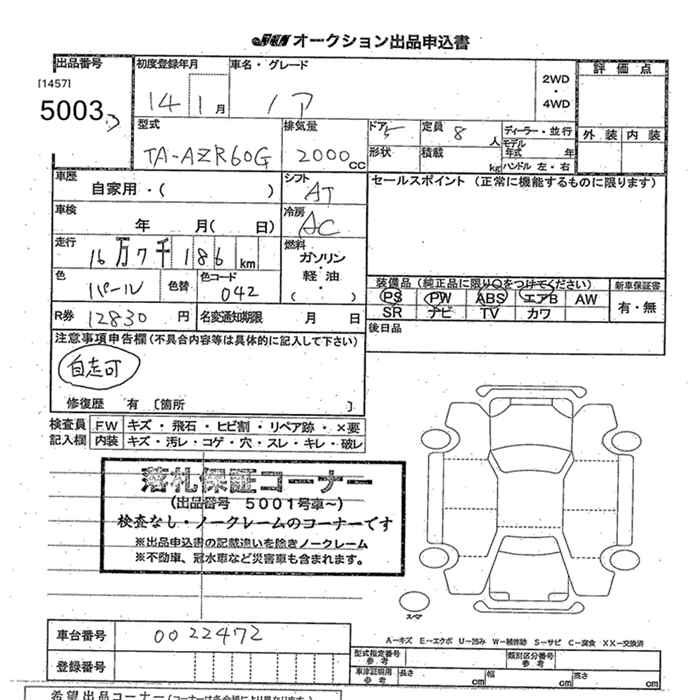 オークション出品申込書
出品番号 初度登録年月 車名・グレード 2WD・4WD 評価点
[1457]
5003
14 1月 ノア
外装 内装
型式 排気量 ドア 5 定員 8人 ディーラー・並行
TA-AZR60G 2000cc 形状 積載 kg モデル年式 年
ハンドル 左・右
車歴 シフト セールスポイント (正常に機能するものに限ります)
自家用・( ) AT
車検 冷房
年 月( 日) AC
走行 燃料
16万7千186km ガソリン
軽油・
( )
色 パール 色替 色コード 042
装備品(純正品に限り○をつけてください) 新車保証書
PS PW ABS エアB AW 有・無
SR ナビ TV カワ
R券 12830円 名変通知期限 月 日
後日品
注意事項申告欄(不具合内容等は具体的に記入して下さい)
自走可
修復歴 有 [箇所 ]
検査員 FW キズ・飛石・ヒビ割・リペア跡・×要
記入欄 内装 キズ・汚レ・コゲ・穴・スレ・キレ・破レ
落札保証コーナー
(出品番号 5001号車~)
検査なし・ノークレームのコーナーです
※出品申込書の記載違いを除きノークレーム
※不動車、冠水車など災害車も含まれます。
スペア
A-キズ E-エクボ U-凹み W-補修跡 S-サビ C-腐食 XX-交換済
車台番号 0022472
型式指定番号 参考 類別区分番号 参考
登録番号
車津証明用 参考 長さ cm 幅 cm 高さ cm
希望出品コーナー